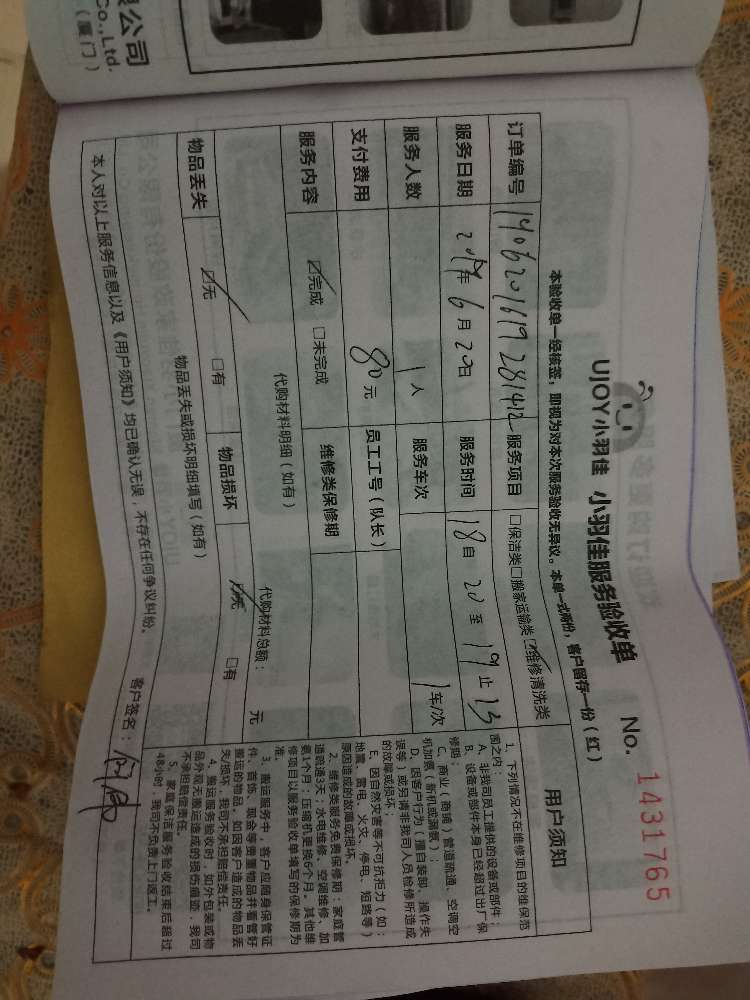 限公司
Co.,Ltd.
(厦门)
UJOY小羽佳 小羽佳服务验收单 No. 1431765
本验收单一经核签，即视为对本次服务验收无异议。本单一式两份，客户留存一份（红）
订单编号 服务项目 □保洁类□搬家运输类☑维修清洗类
服务日期 2019年6月20日 服务时间 18自20至19止15
服务人数 1人 服务车次 1车/次
支付费用 80元 员工工号（队长）
服务内容 ☑完成 □未完成 维修类保修期
代购材料明细（如有） 代购材料总额： 元
物品丢失 ☑无 □有 物品损坏 ☑无 □有
物品丢失或损坏明细填写（如有）
本人对以上服务信息以及《用户须知》均已确认无误，不存在任何争议纠纷。
客户签名：
用户须知
1、下列情况不在维修项目的维保范
围之内：
A、非我司员工提供的设备或部件；
B、设备或部件本身已经超过出厂保
修期；
C、商业（商铺）管道疏通、空调空
机加氟（新机或漏氟）
D、因客户行为（擅自装卸、操作失
误等）或另请非我司人员检修所造成
的故障或损坏；
E、因自然灾害等不可抗拒力（如：
地震、雷电、火灾、停电、短路等）
原因造成的故障或损坏。
2、维修类服务免费保修期：家庭管
道疏通3天；水电维修、空调维修、加
氨1个月；压缩机更换6个月。其他维
修项目以服务验收单填写的保修期为
准。
3、搬运服务中，客户应随身保管证
件、首饰、现金等贵重物品并看管好
搬运的物品，如因客户造成的物品丢
失/损坏，我司不承担赔偿责任。
4、搬运服务验收时，如外包装或物
品外观无搬运造成的损伤痕迹，我司
不承担赔偿责任。
5、家庭保洁服务验收结束后超过
48小时，我司不负责上门返工。